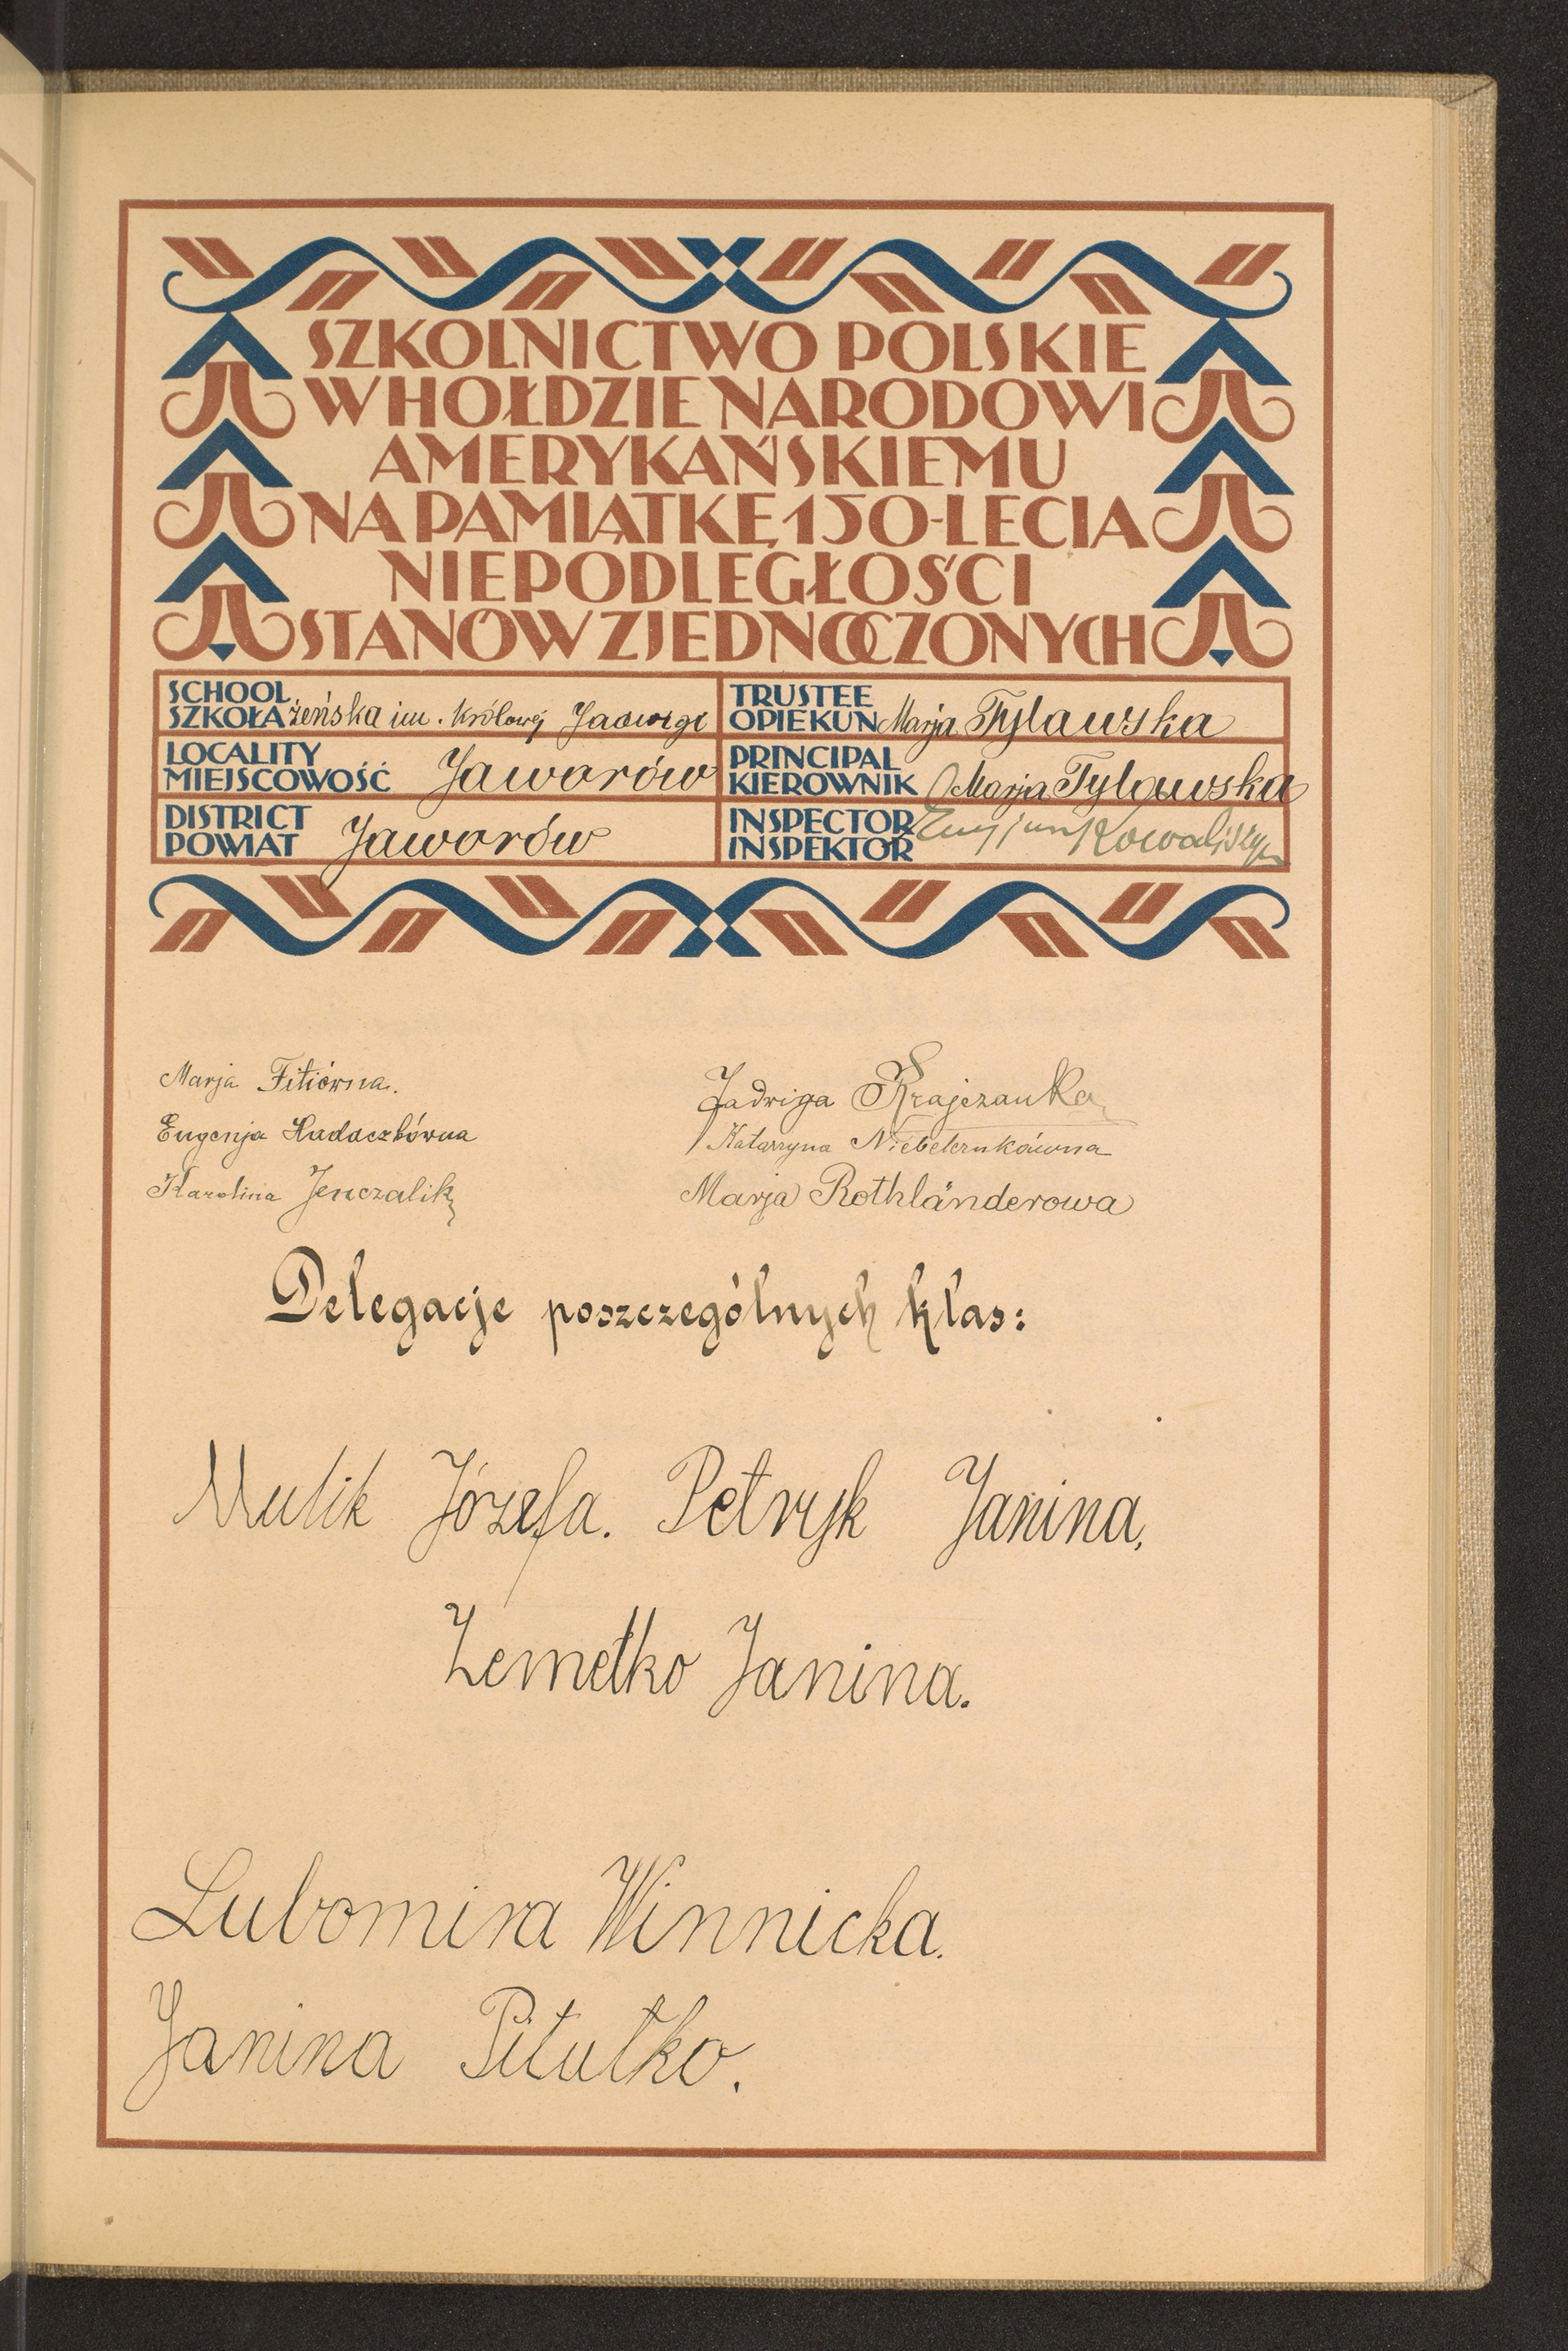 SZKOLNICTWO POLSKIE
W HOŁDZIE NARODOWI
AMERYKAŃSKIEMU
NA PAMIĄTKĘ 150-LECIA
NIEPODLEGŁOŚCI
STANÓW ZJEDNOCZONYCH
SCHOOL
SZKOŁA żeńska im. Królowej Jadwigi
TRUSTEE
OPIEKUN Marja Tylawska
LOCALITY
MIEJSCOWOŚĆ Jaworów
PRINCIPAL
KIEROWNIK Marja Tylawska
DISTRICT
POWIAT Jaworów
INSPECTOR
INSPEKTOR
Marja Fitiówna.
Eugenja Hadaczkówna
Karolina Jenczalik
Jadwiga Krajczanka
Katarzyna
Marja Rothländerowa
Delegacje poszczególnych klas:
Mulik Józefa. Petryk Janina,
Zemełko Janina.
Lubomira Winnicka.
Janina Pitułko.